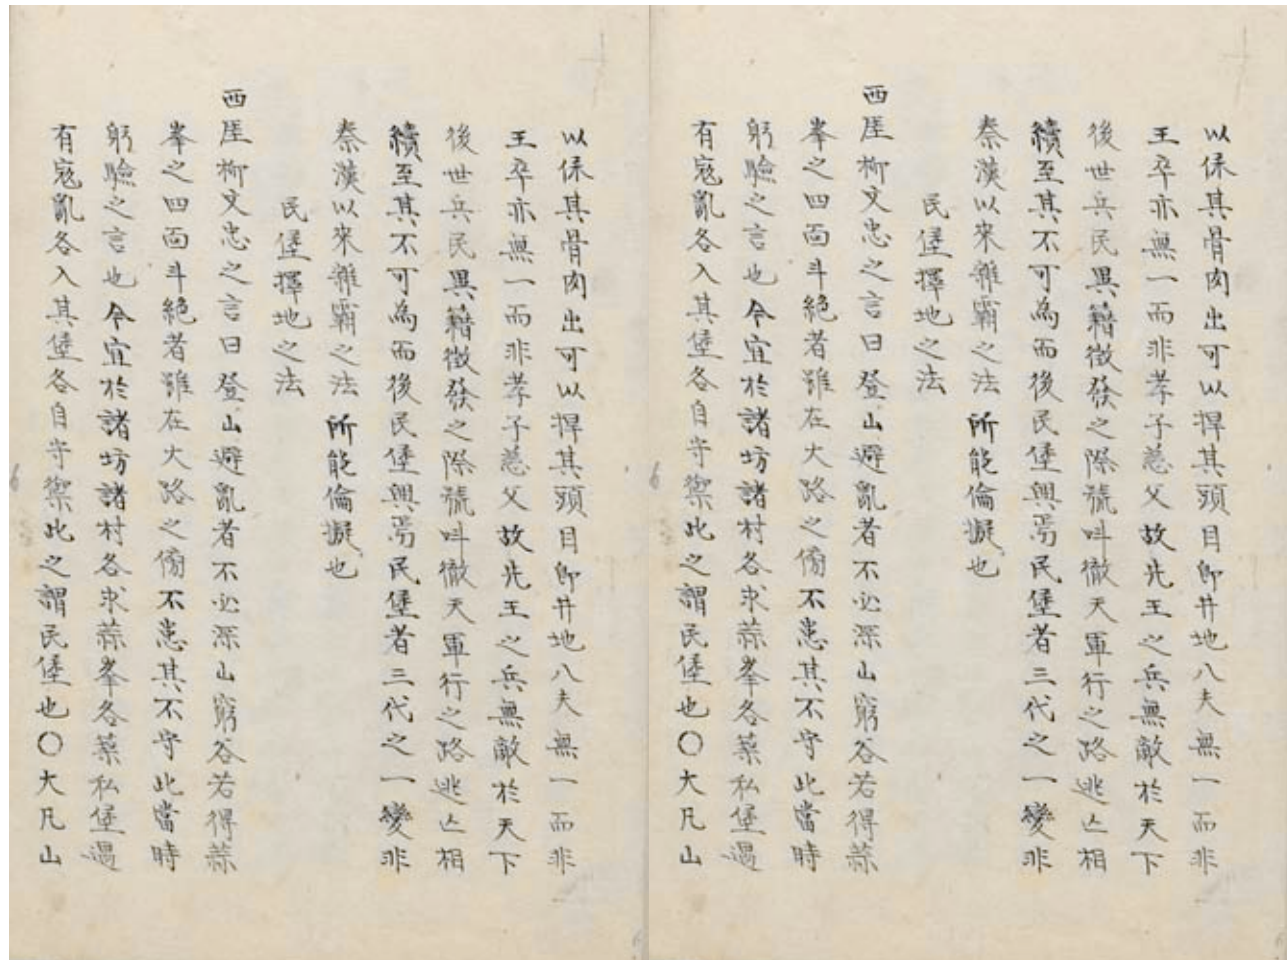 以保其骨肉出可以捍其頭目卽井地八夫無一而非
王卒亦無一而非孝子慈父故先王之兵無敵於天下
後世兵民異籍徵發之際號呌徹天軍行之路逃亡相
續至其不可為而後民堡興焉民堡者三代之一變非
秦漢以來雜霸之法所能倫擬也
民堡擇地之法
西厓柳文忠之言曰登山避亂者不必深山窮谷若得蒜
峯之四面斗絶者雖在大路之傍不患其不守此當時
躬驗之言也今宜於諸坊諸村各求蒜峯各築私堡遇
有寇亂各入其堡各自守禦此之謂民堡也〇大凡山
以保其骨肉出可以捍其頭目卽井地八夫無一而非
王卒亦無一而非孝子慈父故先王之兵無敵於天下
後世兵民異籍徵發之際號呌徹天軍行之路逃亡相
續至其不可為而後民堡興焉民堡者三代之一變非
秦漢以來雜霸之法所能倫擬也
民堡擇地之法
西厓柳文忠之言曰登山避亂者不必深山窮谷若得蒜
峯之四面斗絶者雖在大路之傍不患其不守此當時
躬驗之言也今宜於諸坊諸村各求蒜峯各築私堡遇
有寇亂各入其堡各自守禦此之謂民堡也〇大凡山